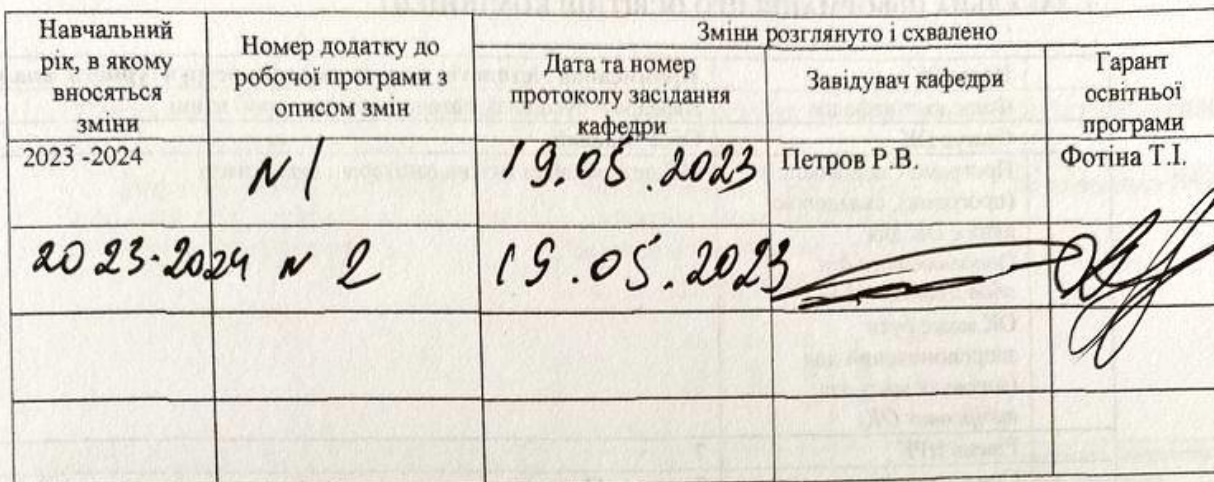 Навчальний
рік, в якому
вносяться
зміни
Номер додатку до
робочої програми з
описом змін
Зміни розглянуто і схвалено
Дата та номер
протоколу засідання
кафедри
Завідувач кафедри
Гарант
освітньої
програми
2023 -2024
N 1
19.05.2023
Петров Р.В.
Фотіна Т.І.
2023-2024
N 2
19.05.2023